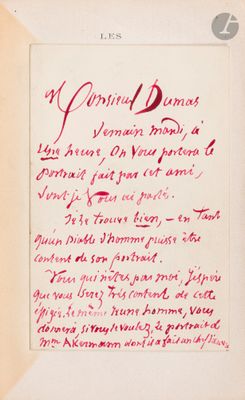 LES
Monsieur Dumas
Demain mardi, à
Une heure, On Vous portera le
portrait fait par cet ami,
dont je Vous ai parlé.
Je le trouve bien, — en tant
qu'un Diable d'homme puisse être
content de son portrait.
Vous qui n'êtes pas moi, j'espère
que vous Serez Très content de cette
effigie. Le même jeune homme, Vous
donnera, si vous le voulez, le portrait de
Mme Akermann dont il a fait un chef